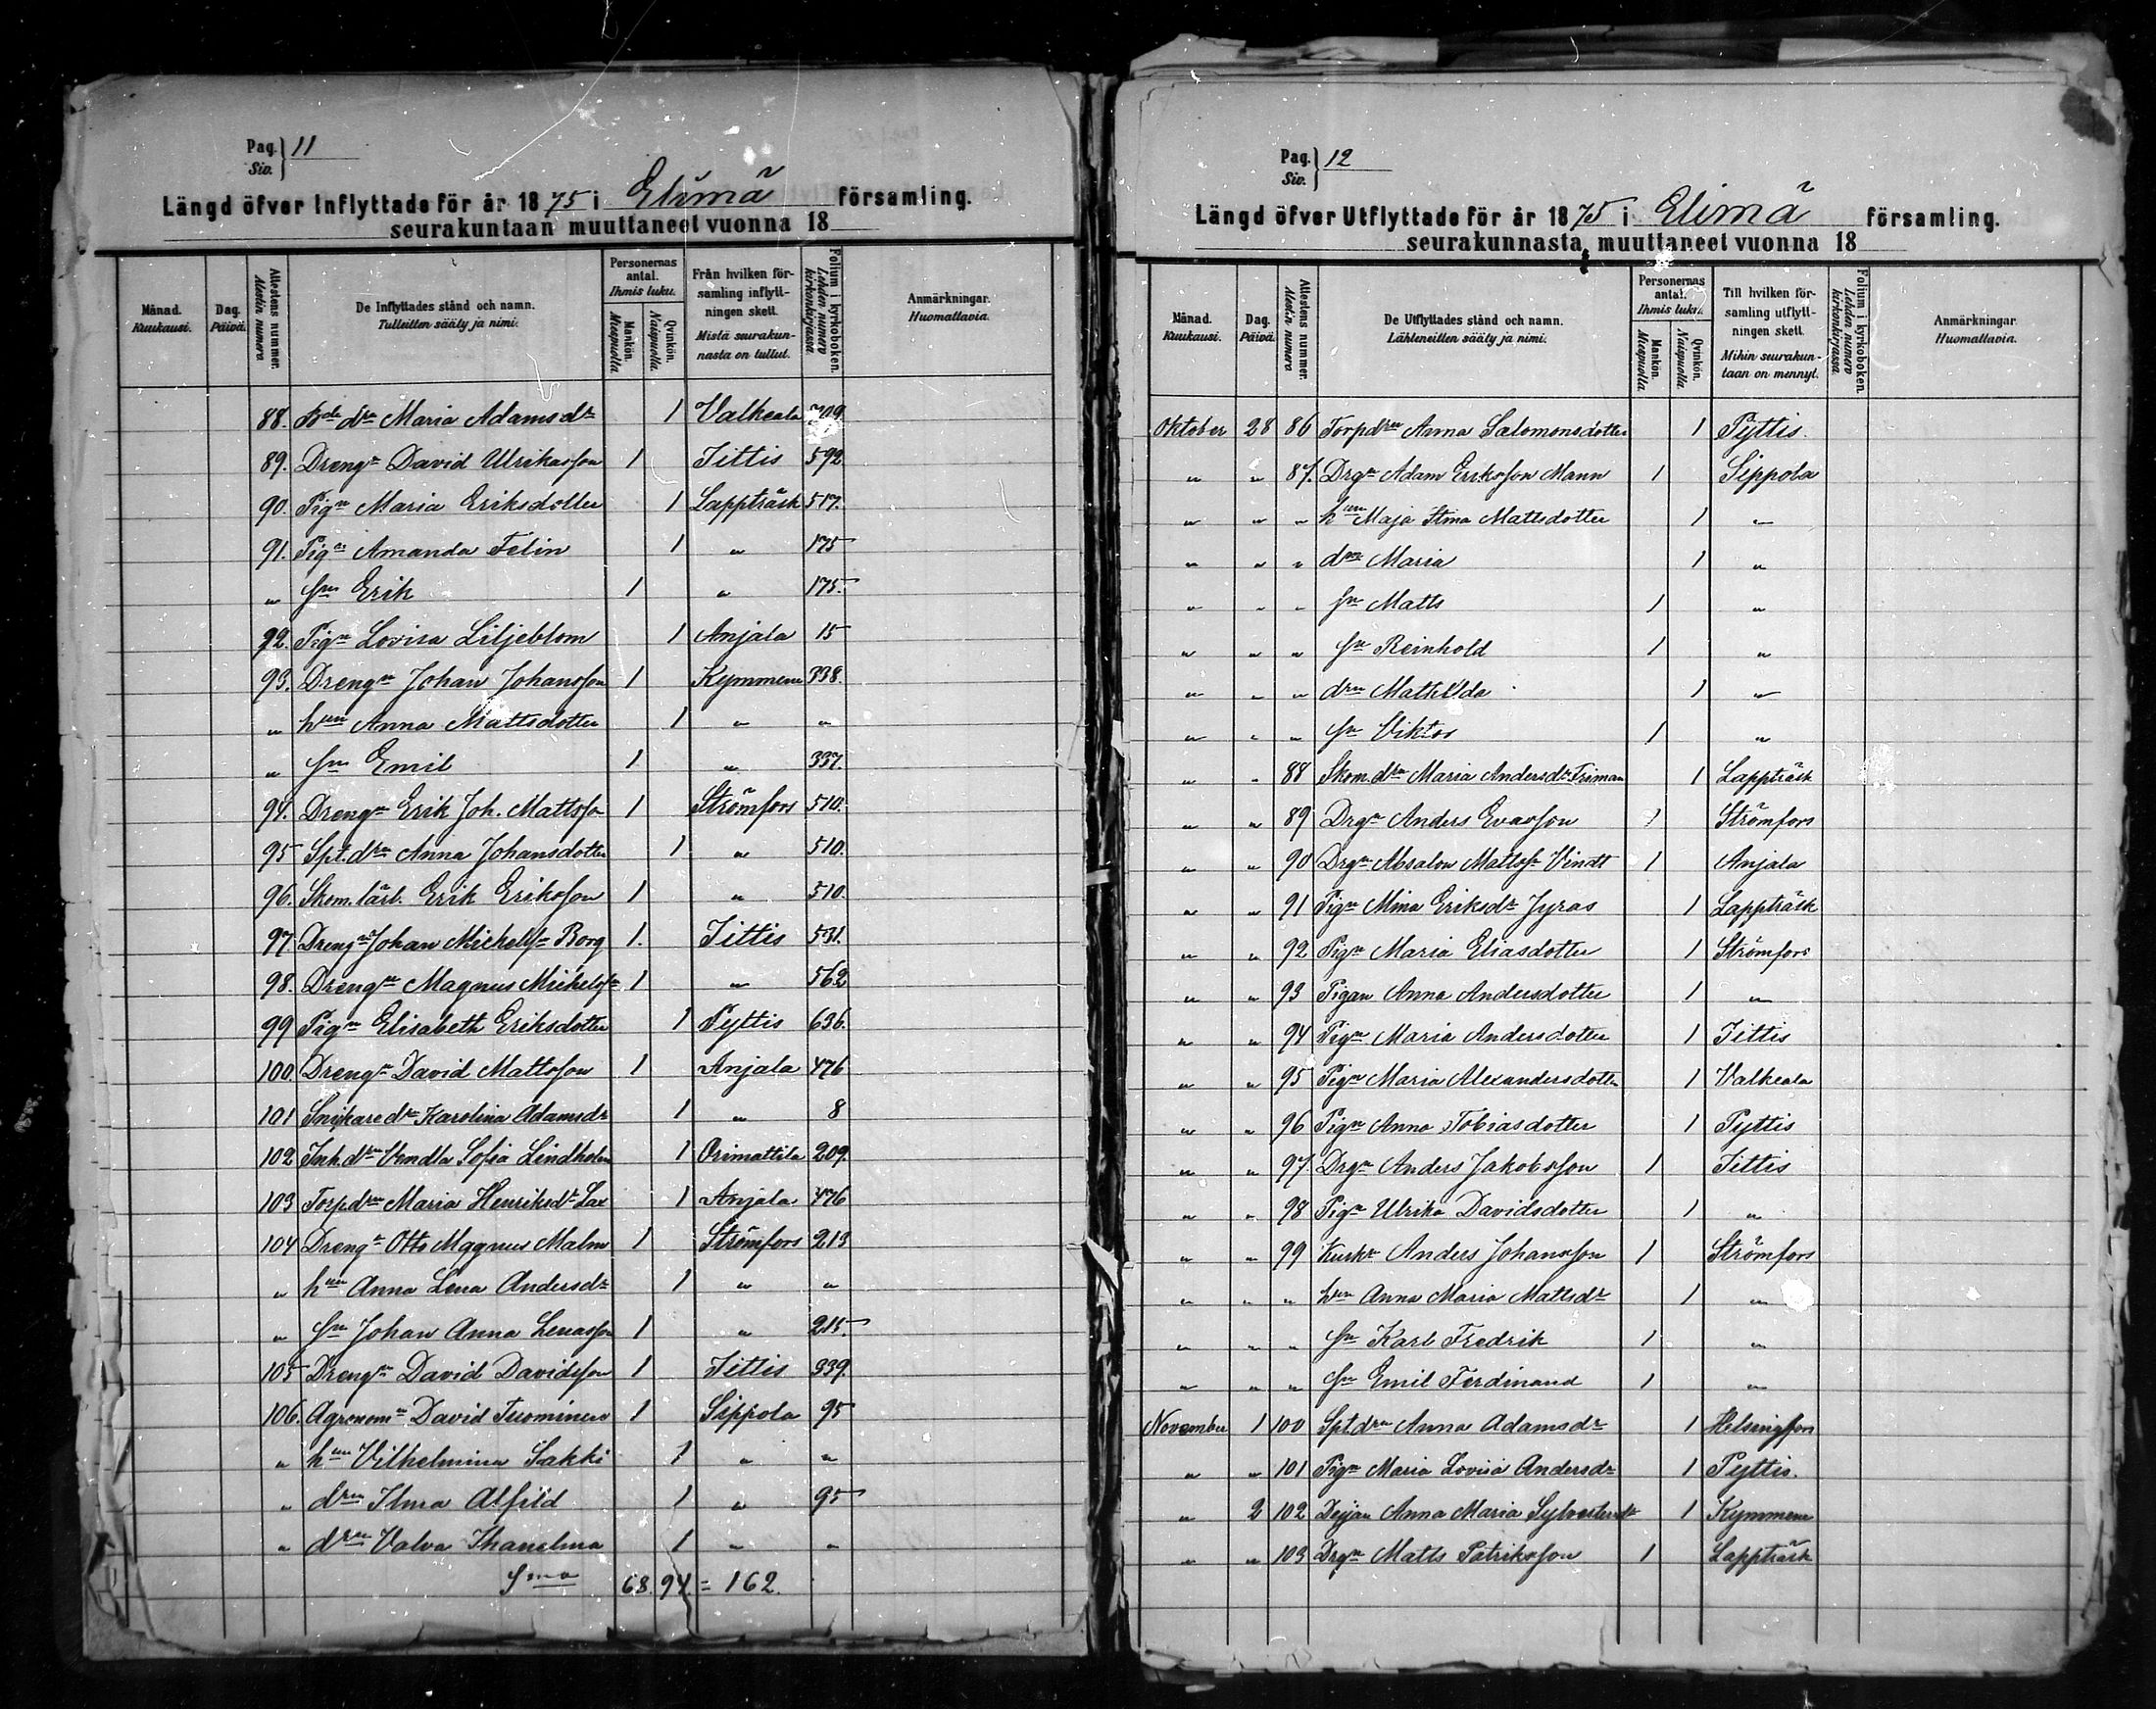 Pag. Siv. } 11
Längd öfver Inflyttade för år 1875 i Elimä församling.
seurakuntaan muuttaneet vuonna 18
Månad. Kuukausi.
Dag. Päivä.
Attestens nummer. Alestin numero
De Inflyttades stånd och namn. Tulleitten sääty ja nimi.
Personernas antal. Ihmis luku.
Mankön. Miespuolla
Qvinkön. Naispuolla.
Från hvilken församling inflyttningen skett. Mistä seurakunnasta on tullut.
Folium i kyrkoboken. Lehden numero kirkonkirjassa
Anmärkningar. Huomattavia.
88. Bde drn Maria Adamsdr 1 Valkeala
89. Drengn David Ulrikasson 1 Jittis 592
90. Pign Maria Eriksdotter 1 Lappträsk 517.
91. Pign Amanda Felin 1 " 175
" sn Erik 1 " 175.
92. Pign Lovisa Liljeblom 1 Anjala 15
93. Drengn Johan Johansson 1 Kymmene 338.
" hun Anna Mattsdotter 1 " "
" sn Emil 1 " 337.
94. Drengn Erik Joh. Mattsson 1 Strömfors 510.
95 Spt. drn Anna Johansdotter 1 " 510.
96. Skom. lärl. Erik Eriksson 1 " 510.
97 Drengn Johan Michelsn Borg 1. Jittis 531.
98. Drengn Magnus Michelsn 1 " 562
99 Pign Elisabeth Eriksdotter 1 Pyttis 636.
100. Drengn David Mattsson 1 Anjala 476
101 Snikare dr Karolina Adamsdr 1 " 8
102 Inh. drn Vendla Sofia Lindholm 1 Orimattila 209.
103 Torp. drn Maria Henriksdr Lax 1 Anjala 476
104 Drengn Otto Magnus Malm 1 Strömfors 213
" hun Anna Lena Andersdr 1 " "
" sn Johan Anna Lenasson 1 " 215.
105 Drengn David Davidsson 1 Jittis 339.
106. Agronomn David Tuominen 1 Sippola 95
" hun Vilhelmina Sakki 1 " "
" drn Ilma Alfild 1 " 95
" drn Valva Thanelma 1 " "
Sma 68. 94 = 162.
Pag. Siv. } 12
Längd öfver Utflyttade för år 1875 i Elimä församling.
seurakunnasta muuttaneet vuonna 18
Månad. Kuukausi.
Dag. Päivä.
Attestens nummer. Alestin numero
De Utflyttades stånd och namn. Lähteneitten sääty ja nimi.
Personernas antal. Ihmis luku.
Mankön. Miespuolla
Qvinkön. Naispuolla
Till hvilken församling utflyttningen skett. Mihin seurakuntaan on mennyt.
Folium i kyrkoboken. Lehden numero kirkonkirjassa
Anmärkningar. Huomattavia.
Oktober 28 86 Torpdrn Anna Salomonsdotter 1 Pyttis.
" " 87. Drgn Adam Eriksson Mann 1 Sippola
" " " hun Maja Stina Mattsdotter 1 "
" " " drn Maria 1 "
" " " sn Matts 1 "
" " " sn Reinhold 1 "
" " " drn Mathilda 1 "
" " " sn Viktor 1 "
" " 88 Skom. drn Maria Andersdr Friman 1 Lappträsk
" " 89 Drgn Anders Evasson 1 Strömfors
" " 90 Drgn Absalon Mattsn Vindt 1 Anjala
" " 91 Pign Mina Eriksdr Jyras 1 Lappträsk
" " 92 Pign Maria Eliasdotter 1 Strömfors
" " 93 Pigan Anna Andersdotter 1 "
" " 94 Pign Maria Andersdotter 1 Jittis
" " 95 Pign Maria Alexandersdotter 1 Valkeala
" " 96 Pign Anna Tobiasdotter 1 Pyttis
" " 97. Drgn Anders Jakobsson 1 Jittis
" " 98 Pign Ulrika Davidsdotter 1 "
" " 99 Kuskn Anders Johansson 1 Strömfors
" " " hun Anna Maria Mattsdr 1 "
" " " sn Karl Fredrik 1 "
" " " sn Emil Ferdinand 1 "
November 1 100 Spt. drn Anna Adamsdr 1 Helsingfors
" " 101 Pign Maria Lovisa Andersdr 1 Pyttis.
" 2 102 Dejan Anna Maria Sylvestersdr 1 Kymmene
" " 103 Drgn Matts Patriksson 1 Lappträsk